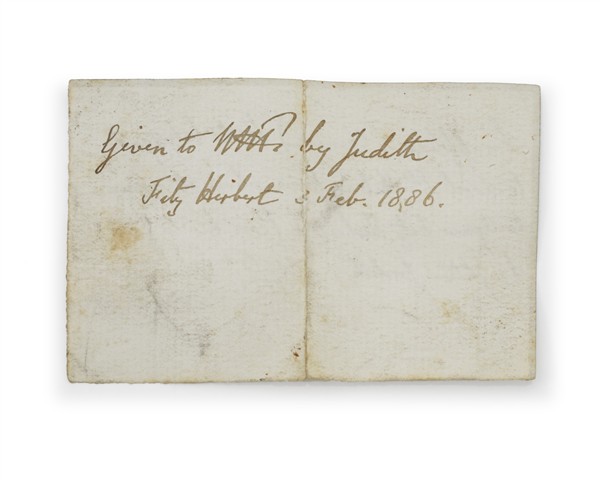 Given to WHP. by Judith
Fitz Herbert 2 Feb. 1886.